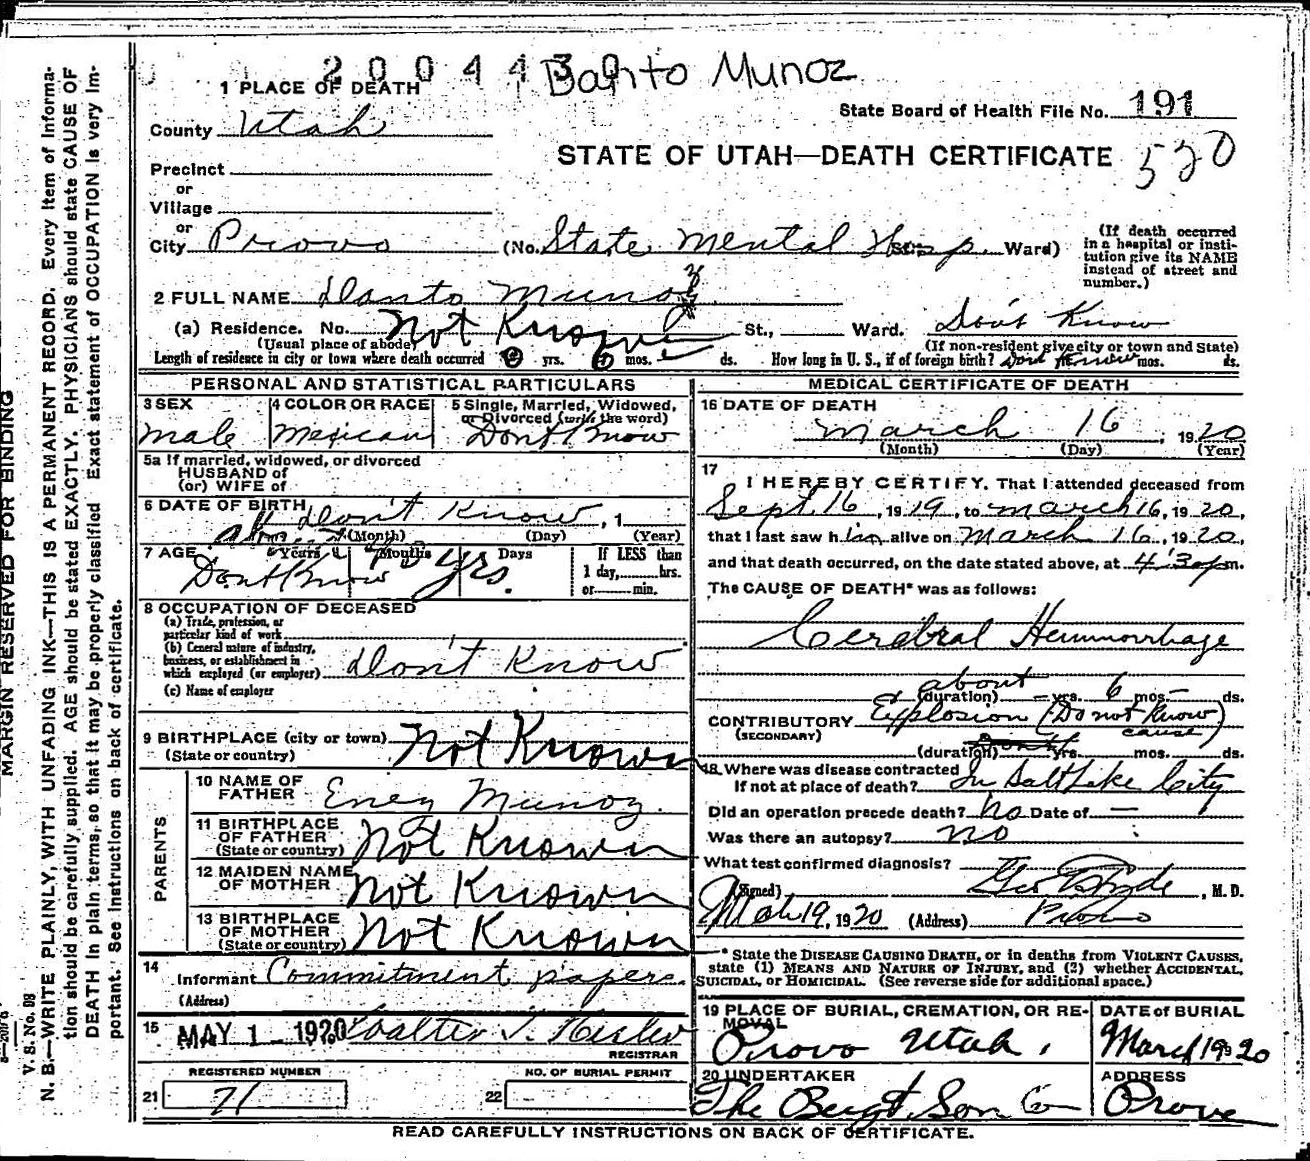 2004430 Danto Munoz
1 PLACE OF DEATH
State Board of Health File No. 191
County Utah
STATE OF UTAH—DEATH CERTIFICATE 520
Precinct
or
Village
or
City Provo (No. State Mental Hosp. St., Ward)
(If death occurred in a hospital or institution give its NAME instead of street and number.)
2 FULL NAME Danto Munoz
(a) Residence. No. Not Known St., Ward. Don't Know
(Usual place of abode) (If non-resident give city or town and State)
Length of residence in city or town where death occurred 0 yrs. 6 mos. ds. How long in U. S., if of foreign birth? Dont Know mos. ds.
PERSONAL AND STATISTICAL PARTICULARS
3 SEX Male
4 COLOR OR RACE Mexican
5 Single, Married, Widowed, or Divorced (write the word) Dont Know
5a If married, widowed, or divorced
HUSBAND of
(or) WIFE of
6 DATE OF BIRTH Don't Know, 1
(Month) (Day) (Year)
7 AGE Years Months Days If LESS than
Dont Know yrs. 1 day, hrs.
or min.
8 OCCUPATION OF DECEASED
(a) Trade, profession, or
particular kind of work
(b) General nature of industry,
business, or establishment in
which employed (or employer) Don't Know
(c) Name of employer
9 BIRTHPLACE (city or town) Not Known
(State or country)
PARENTS
10 NAME OF FATHER Eney Munoz
11 BIRTHPLACE OF FATHER (State or country) Not Known
12 MAIDEN NAME OF MOTHER Not Known
13 BIRTHPLACE OF MOTHER (State or country) Not Known
14 Informant Commitment papers.
(Address)
15 MAY 1 - 1920 Walter T. Hesler
REGISTRAR
REGISTERED NUMBER NO. OF BURIAL PERMIT
21 71 22
MEDICAL CERTIFICATE OF DEATH
16 DATE OF DEATH
March 16, 1920
(Month) (Day) (Year)
17 I HEREBY CERTIFY, That I attended deceased from
Sept. 16, 1919, to March 16, 1920,
that I last saw him alive on March 16, 1920,
and that death occurred, on the date stated above, at 4:30 p m.
The CAUSE OF DEATH* was as follows:
Cerebral Hemmorrhage
about
(duration) — yrs. 6 mos — ds.
CONTRIBUTORY Explosion (Do not Know
(SECONDARY) cause)
(duration) yrs. mos. ds.
18 Where was disease contracted
If not at place of death? In Salt Lake City
Did an operation precede death? No Date of —
Was there an autopsy? no
What test confirmed diagnosis?
(Signed) Geo E Hyde, M. D.
Mch 19, 1920 (Address) Provo
* State the DISEASE CAUSING DEATH, or in deaths from VIOLENT CAUSES,
state (1) MEANS AND NATURE OF INJURY, and (2) whether ACCIDENTAL,
SUICIDAL, or HOMICIDAL. (See reverse side for additional space.)
19 PLACE OF BURIAL, CREMATION, OR REMOVAL
Provo Utah.
DATE of BURIAL
March 19 1920
20 UNDERTAKER
The Berg & Son Co
ADDRESS
Provo
READ CAREFULLY INSTRUCTIONS ON BACK OF CERTIFICATE.
MARGIN RESERVED FOR BINDING
V. S. No. D8
N. B.—WRITE PLAINLY, WITH UNFADING INK—THIS IS A PERMANENT RECORD. Every item of informa-
tion should be carefully supplied. AGE should be stated EXACTLY. PHYSICIANS should state CAUSE OF
DEATH in plain terms, so that it may be properly classified Exact statement of OCCUPATION is very im-
portant. See instructions on back of certificate.